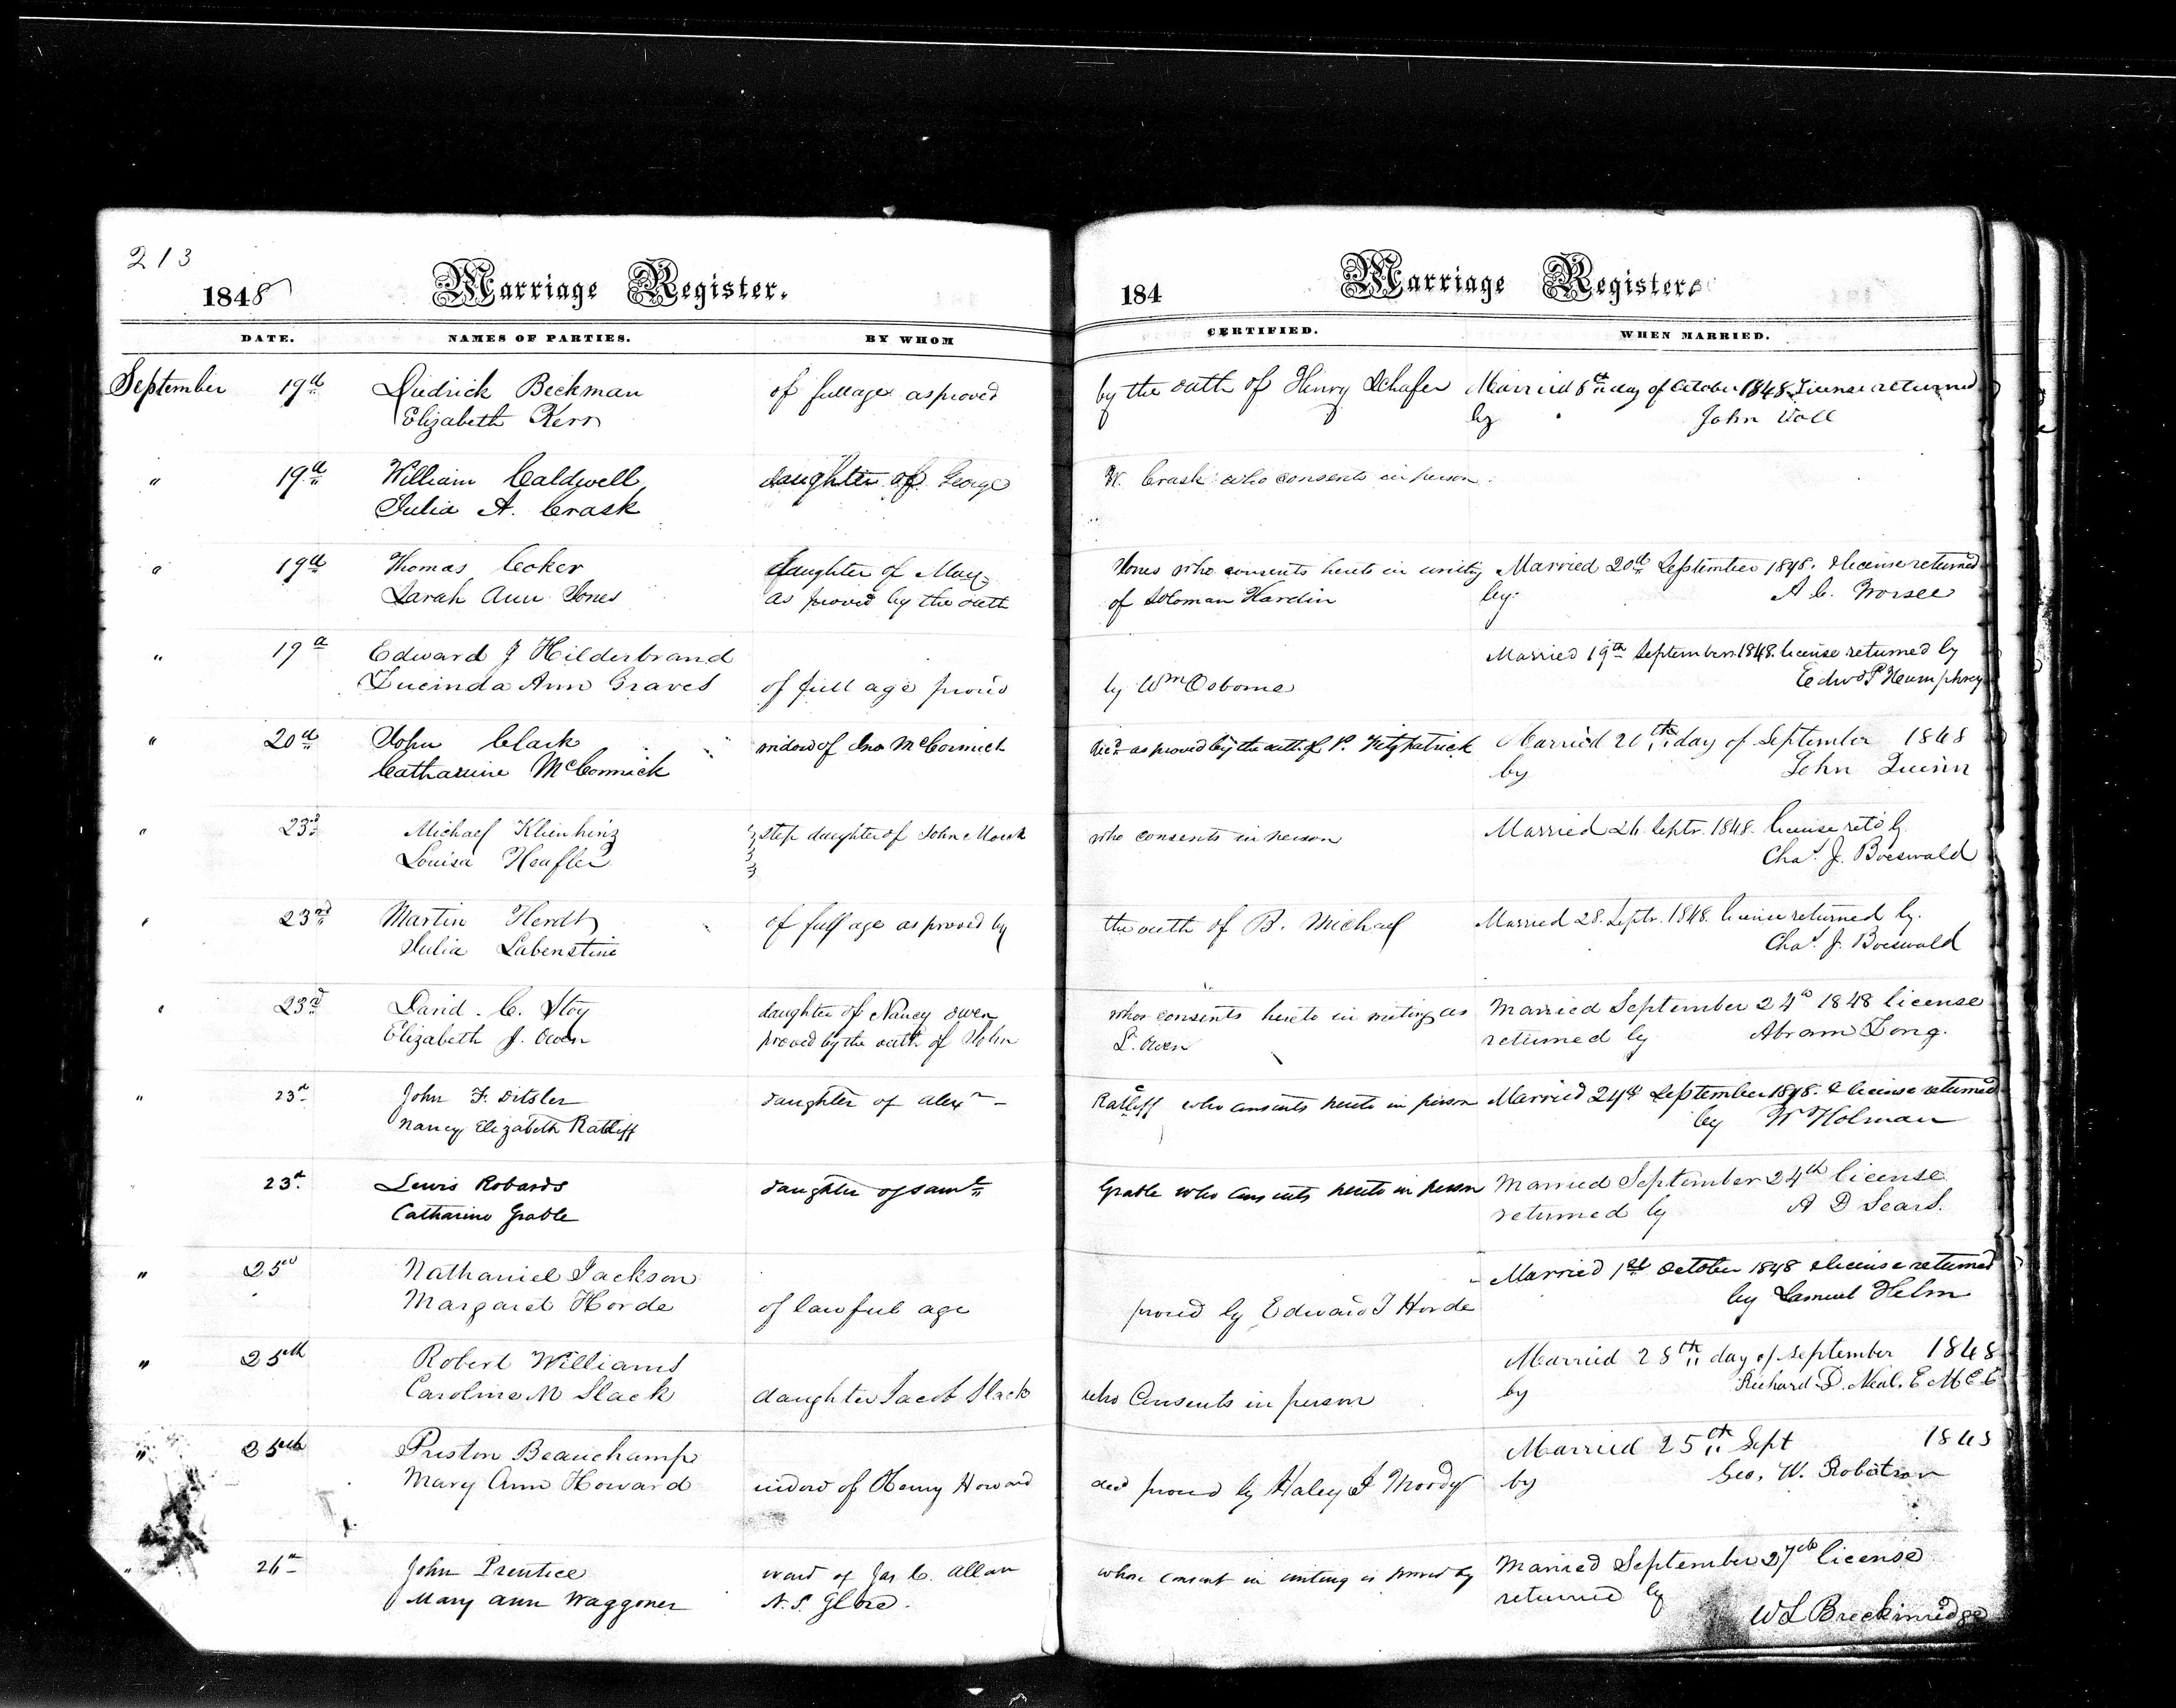 213
1848 Marriage Register.
184 Marriage Register
DATE. NAMES OF PARTIES. BY WHOM CERTIFIED. WHEN MARRIED.
September 19th Diedrick Beckman of full age as proved by the oath of Henry Schafer Married 5th day of October 1848 License returned
Elizabeth Kerr by John Voll
" 19th William Caldwell daughter of George W. Crask who consents in person.
Julia A. Crask
" 19th Thomas Coker daughter of Mary Jones who consents hereto in writing Married 20th September 1848. & license returned
Sarah Ann Jones as proved by the oath of Soloman Hardin by A C.
" 19th Edward J Hilderbrand Married 19th September 1848. license returned by
Lucinda Ann Graves of full age proved by Wm Osborne Edwd P Humphrey
" 20th John Clark widow of Jno McCormick decd as proved by the oath of P. Fitzpatrick Married 20th day of September 1848
Catharine McCormick by John Quinn
" 23rd Michael Klienhinz step daughter of John who consents in person Married 26 Septr. 1848. license retd by
Louisa Heafler Chas. J. Boeswald
" 23rd Martin Herdt of full age as proved by the oath of B. Michael Married 28. Septr. 1848. license returned by.
Julia Labenstine Chas. J. Boeswald
" 23rd David. C. Stoy daughter of Nancy Owen who consents hereto in writing as Married September 24th 1848 license
Elizabeth J. Owen proved by the oath of John L. Owen returned by Abram Long.
" 23rd John F. Ditsler daughter of Alexr - Ratliff who consents hereto in person Married 24th September 1848. & license returned
Nancy Elizabeth Ratliff by W Holman
23rd Lewis Robards daughter of Saml Grable who consents hereto in person Married September 24th license
Catharine Grable returned by A D Sears.
" 25th Nathaniel Jackson Married 1st October 1848 & license returned
Margaret Horde of lawful age proved by Edward T Horde by Samuel Helm
" 25th Robert Williams Married 28th day of September 1848
Caroline M Slack daughter Jacob Slack who Consents in person by Richard D. Neal. E M E C
" 25th Preston Beauchamp Married 25th Sept 1848
Mary Ann Howard widow of Henry Howard decd proved by Haley J Moody by Geo. W. Robertson
" 26th John Prentice ward of Jas C. Allan whose consent in writing is proved by Married September 27th license
Mary Ann Waggoner N. S. Glore. returned by W L Breckinridge